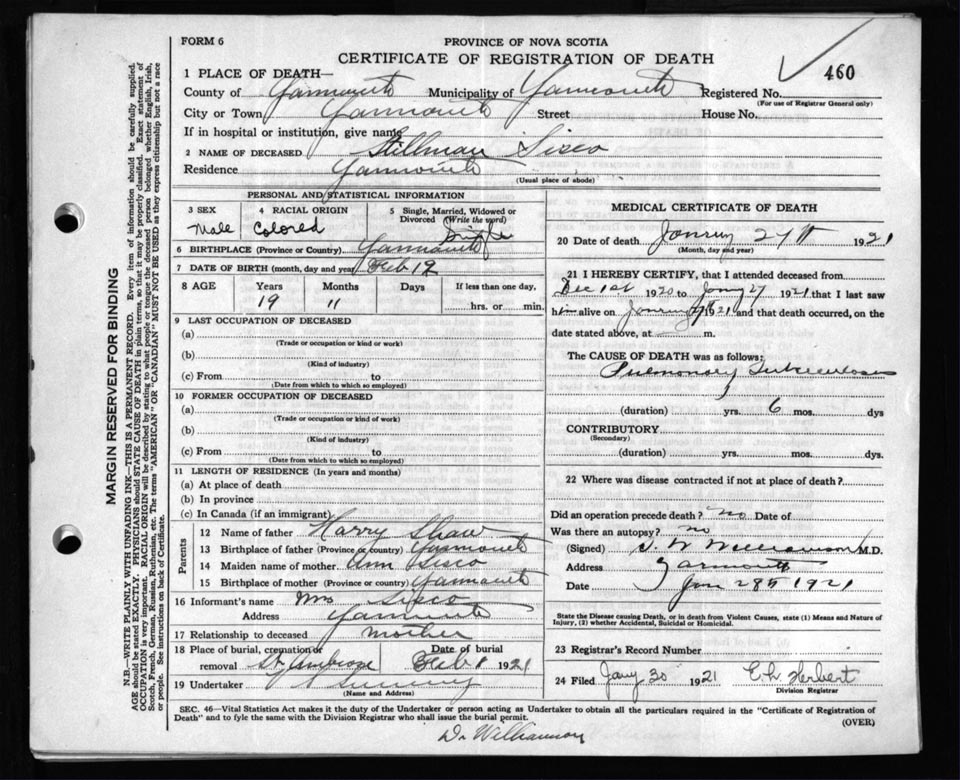 FORM 6
PROVINCE OF NOVA SCOTIA
CERTIFICATE OF REGISTRATION OF DEATH
460
1 PLACE OF DEATH—
County of Yarmouth Municipality of Yarmouth Registered No.
(For use of Registrar General only)
City or Town Yarmouth Street House No.
If in hospital or institution, give name
2 NAME OF DECEASED Stillman Sisco
Residence Yarmouth
(Usual place of abode)
PERSONAL AND STATISTICAL INFORMATION
3 SEX 4 RACIAL ORIGIN 5 Single, Married, Widowed or Divorced (Write the word)
Male Colored Single
6 BIRTHPLACE (Province or Country) Yarmouth
7 DATE OF BIRTH (month, day and year) Feb 19
8 AGE Years Months Days If less than one day,
19 11 hrs. or min.
9 LAST OCCUPATION OF DECEASED
(a)
(Trade or occupation or kind or work)
(b)
(Kind of industry)
(c) From to
(Date from which to which so employed)
10 FORMER OCCUPATION OF DECEASED
(a)
(Trade or occupation or kind of work)
(b)
(Kind of industry)
(c) From to
(Date from which to which so employed)
11 LENGTH OF RESIDENCE (In years and months)
(a) At place of death
(b) In province
(c) In Canada (if an immigrant)
Parents
12 Name of father Harry Shaw
13 Birthplace of father (Province or country) Yarmouth
14 Maiden name of mother Ann Sisco
15 Birthplace of mother (Province or country) Yarmouth
16 Informant's name Mrs Sisco
Address Yarmouth
17 Relationship to deceased Mother
18 Place of burial, cremation or removal St Ambrose Date of burial Feb 1 1921
19 Undertaker
(Name and Address)
MEDICAL CERTIFICATE OF DEATH
20 Date of death 27th 1921
(Month, day and year)
21 I HEREBY CERTIFY, that I attended deceased from
Dec 1st 1920 to 27 1921 that I last saw
him alive on 1921 and that death occurred, on the
date stated above, at m.
The CAUSE OF DEATH was as follows:
Pulmonary Tuberculosis
(duration) yrs. 6 mos. dys
CONTRIBUTORY
(Secondary)
(duration) yrs. mos. dys.
22 Where was disease contracted if not at place of death?
Did an operation precede death? no Date of
Was there an autopsy? no
(Signed) M.D.
Address Yarmouth
Date Jan 28th 1921
State the Disease causing Death, or in death from Violent Causes, state (1) Means and Nature of Injury, (2) whether Accidental, Suicidal or Homicidal.
23 Registrar's Record Number
24 Filed Jany 30 1921 E h Herbert
Division Registrar
SEC. 46—Vital Statistics Act makes it the duty of the Undertaker or person acting as Undertaker to obtain all the particulars required in the "Certificate of Registration of
Death" and to fyle the same with the Division Registrar who shall issue the burial permit.
(OVER)
Dr Williamson
MARGIN RESERVED FOR BINDING
N.B.—WRITE PLAINLY WITH UNFADING INK—THIS IS A PERMANENT RECORD. Every item of information should be carefully supplied.
AGE should be stated EXACTLY. PHYSICIANS should STATE CAUSE OF DEATH in plain terms, so that it may be properly classified. Exact statement of
OCCUPATION is very important. RACIAL ORIGIN will be described by stating to what people or tongue the deceased person belonged whether English, Irish,
Scotch, French, German, Russian, Ruthenian, etc. The terms "AMERICAN" OR "CANADIAN" MUST NOT BE USED as they express citizenship but not a race
or people. See instructions on back of Certificate.